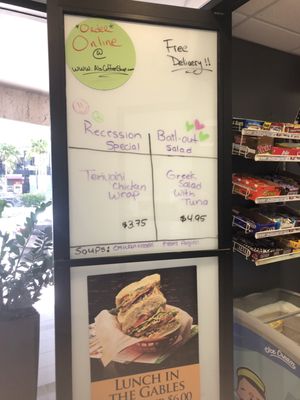 *Order*
Online
@
www.AlsCoffeeShop.com
Free
Delivery!!
Recession
Special
Bail-out
Salad
Teriyaki
Chicken
Wrap
$3.75
Greek
Salad
with
Tuna
$4.95
Soups: Chicken Noodle
LUNCH IN
THE GABLES
$6.00
Ice Cream